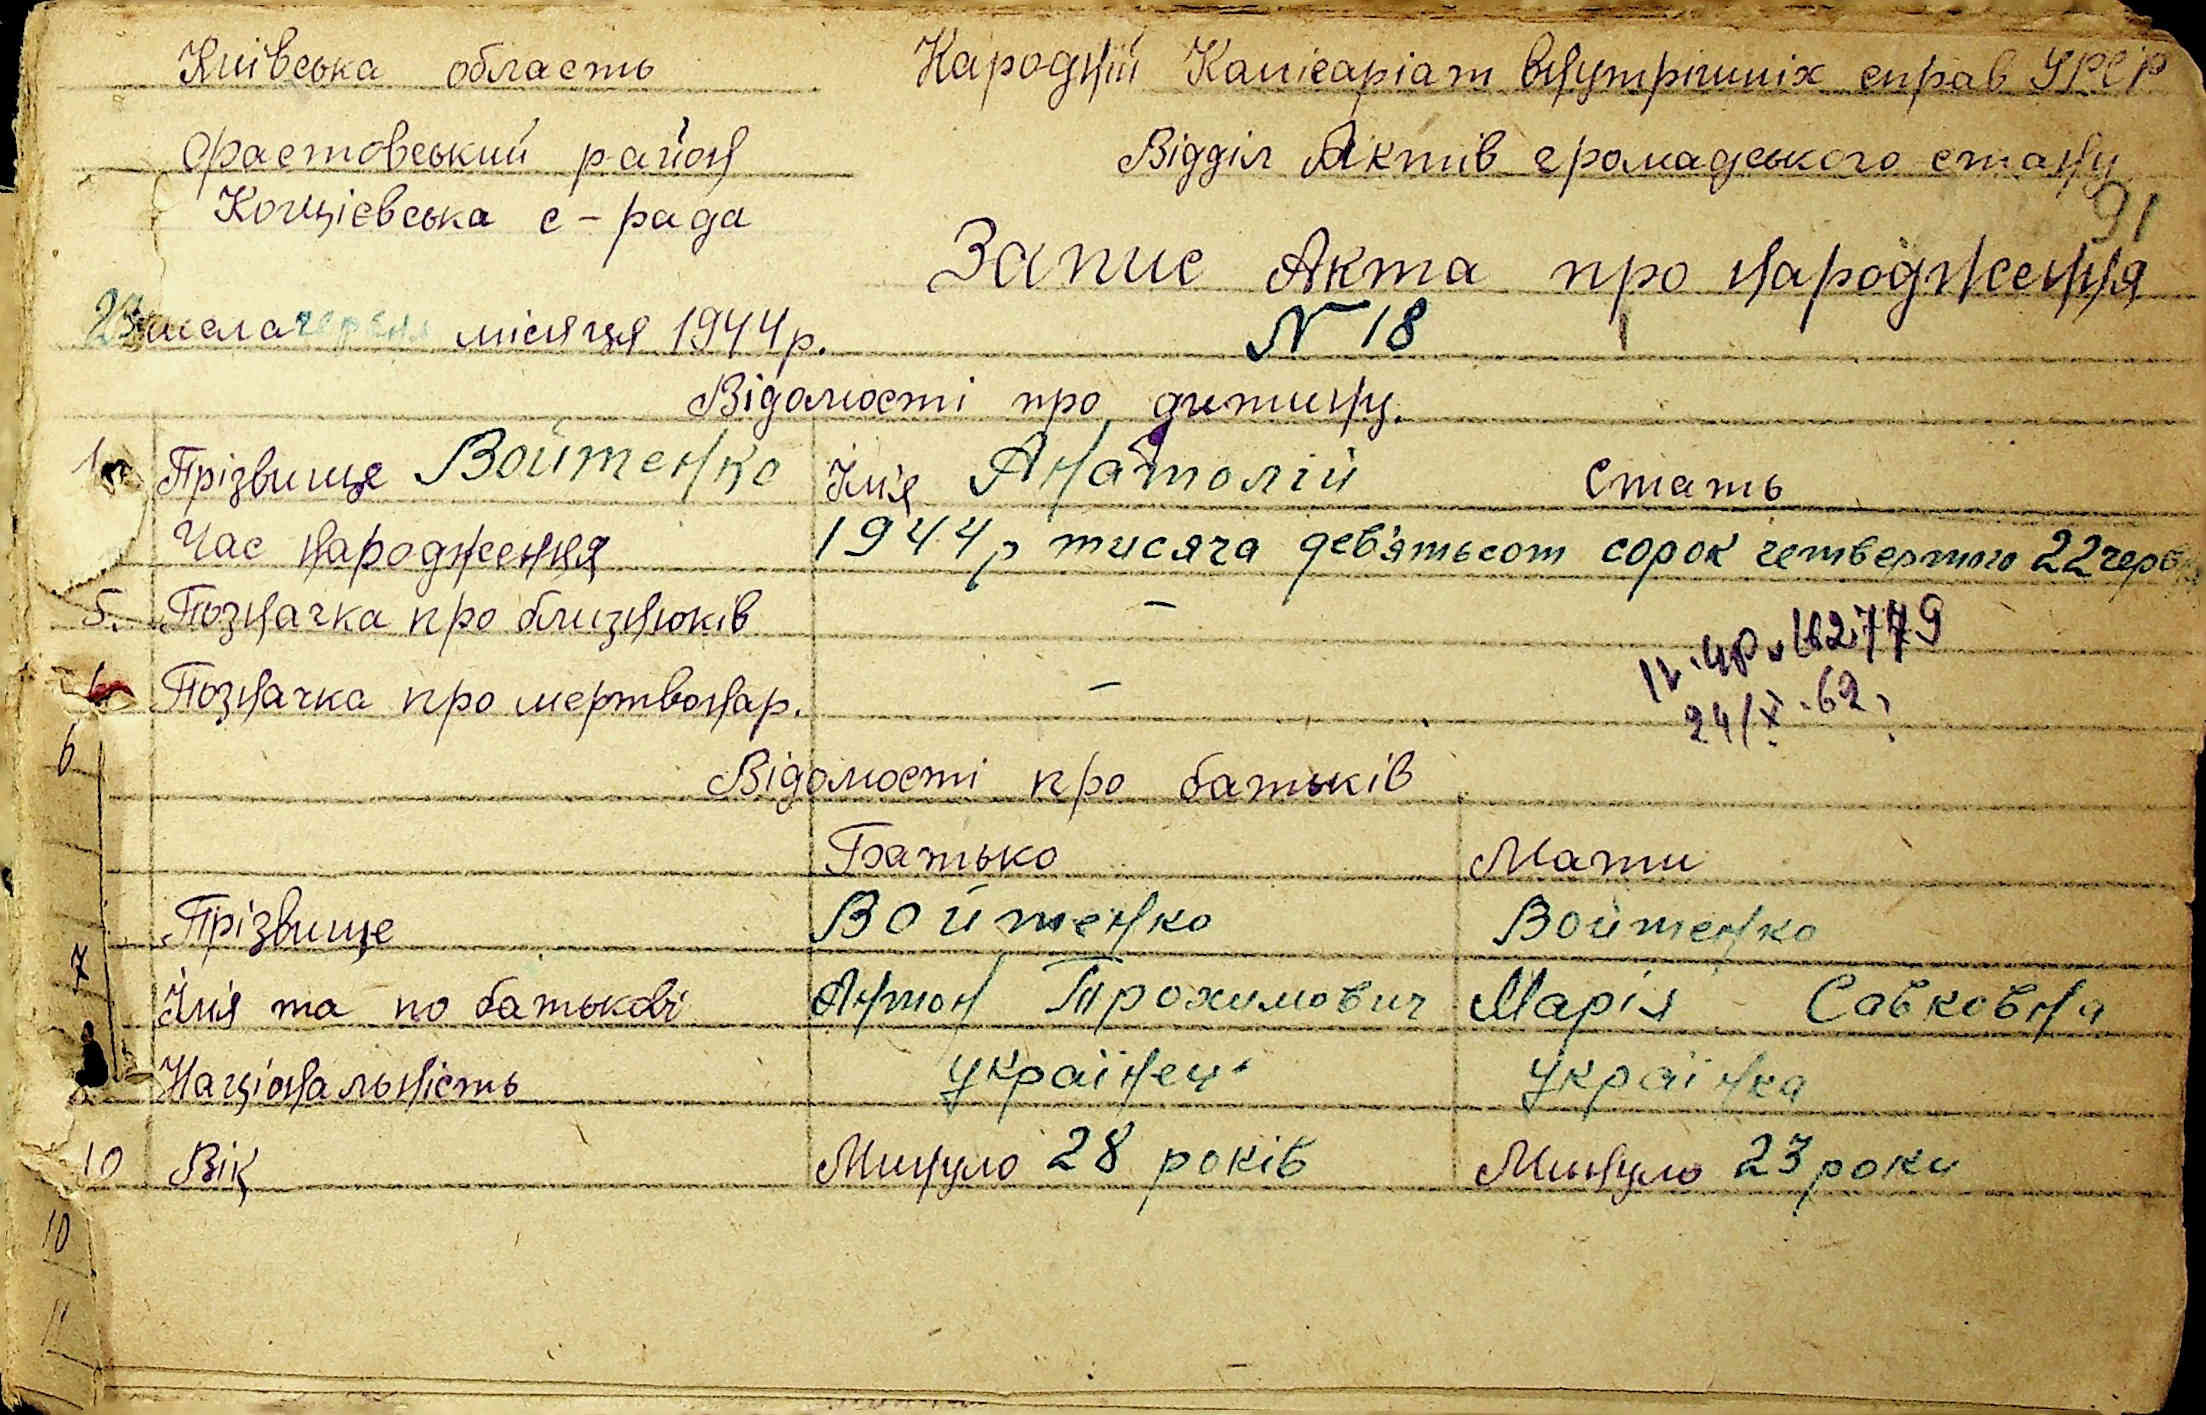 Київська область
Народній Комісаріат внутрішніх справ УРСР
Фастовський район
Відділ Актів громадського стану
Кощієвська с-рада
91
Запис Акта про народження
23 числа червня місяця 1944 р.
N 18
Відомості про дитину.
1. Прізвище Войтенко Ім'я Анатолій Стать
Час народження 1944 р тисяча дев'ятьсот сорок четвертого 22 черв
5. Позначка про близнюків –
Позначка про мертвонар. –
162779
24/X.62
6
Відомості про батьків
Батько Мати
Прізвище Войтенко Войтенко
7
Ім'я та по батькові Антон Трохимович Марія Савковна
Національність українець українка
10 Вік Минуло 28 років Минуло 23 роки
10
11